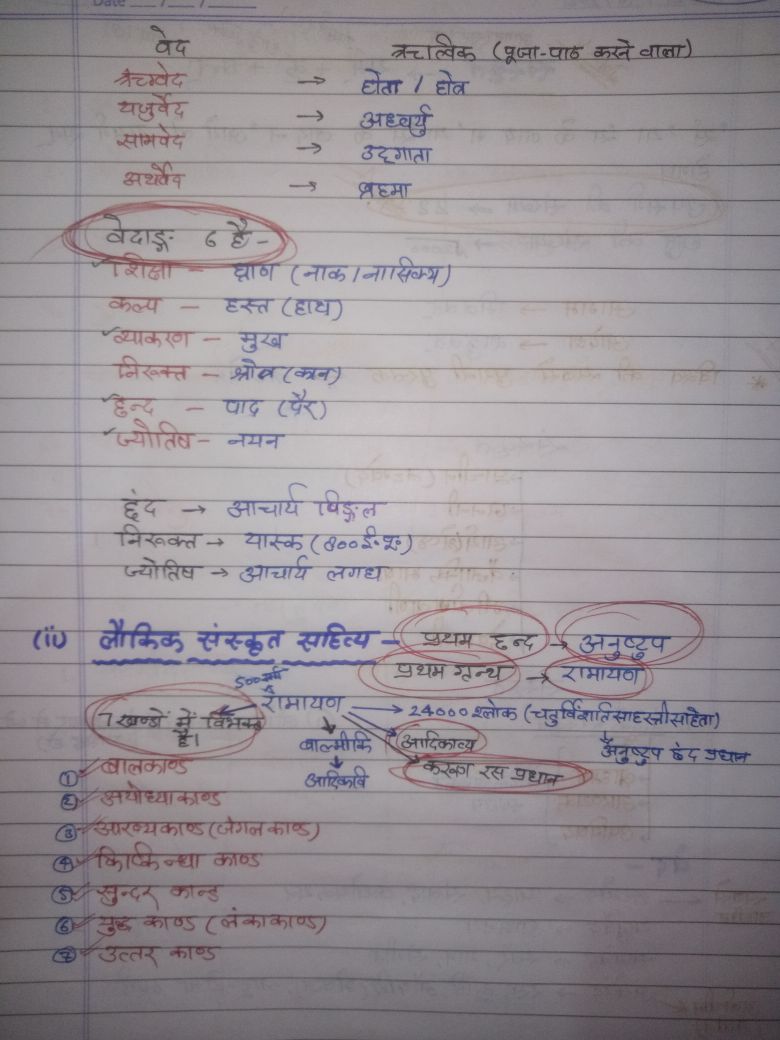 Date __/__/__
वेद ऋत्विक (पूजा-पाठ करने वाला)
ऋग्वेद → होता / होतृ
यजुर्वेद → अध्वर्यु
सामवेद → उद्गाता
अथर्वेद → ब्रह्मा
वेदाङ्ग 6 है -
शिक्षा - घ्राण (नाक/नासिक्य)
कल्प - हस्त (हाथ)
व्याकरण - मुख
निरूक्त - श्रोत्र (कान)
छन्द - पाद (पैर)
ज्योतिष - नयन
छंद → आचार्य पिङ्गल
निरूक्त → यास्क (800 ई॰ पू॰)
ज्योतिष → आचार्य लगध
(ii) लौकिक संस्कृत साहित्य - प्रथम छन्द → अनुष्टुप
प्रथम ग्रन्थ → रामायण
500
7 खण्डों में विभक्त है। रामायण → 24000 श्लोक (चतुर्विंशतिसाहस्त्रीसंहिता)
बाल्मीकि आदिकाव्य अनुष्टुप छंद प्रधान
आदिकवि करूण रस प्रधान
① बालकाण्ड
② अयोध्या काण्ड
③ आरण्य काण्ड (जंगल काण्ड)
④ किष्किन्धा काण्ड
⑤ सुन्दर कान्ड
⑥ युद्ध काण्ड (लंका काण्ड)
⑦ उत्तर काण्ड